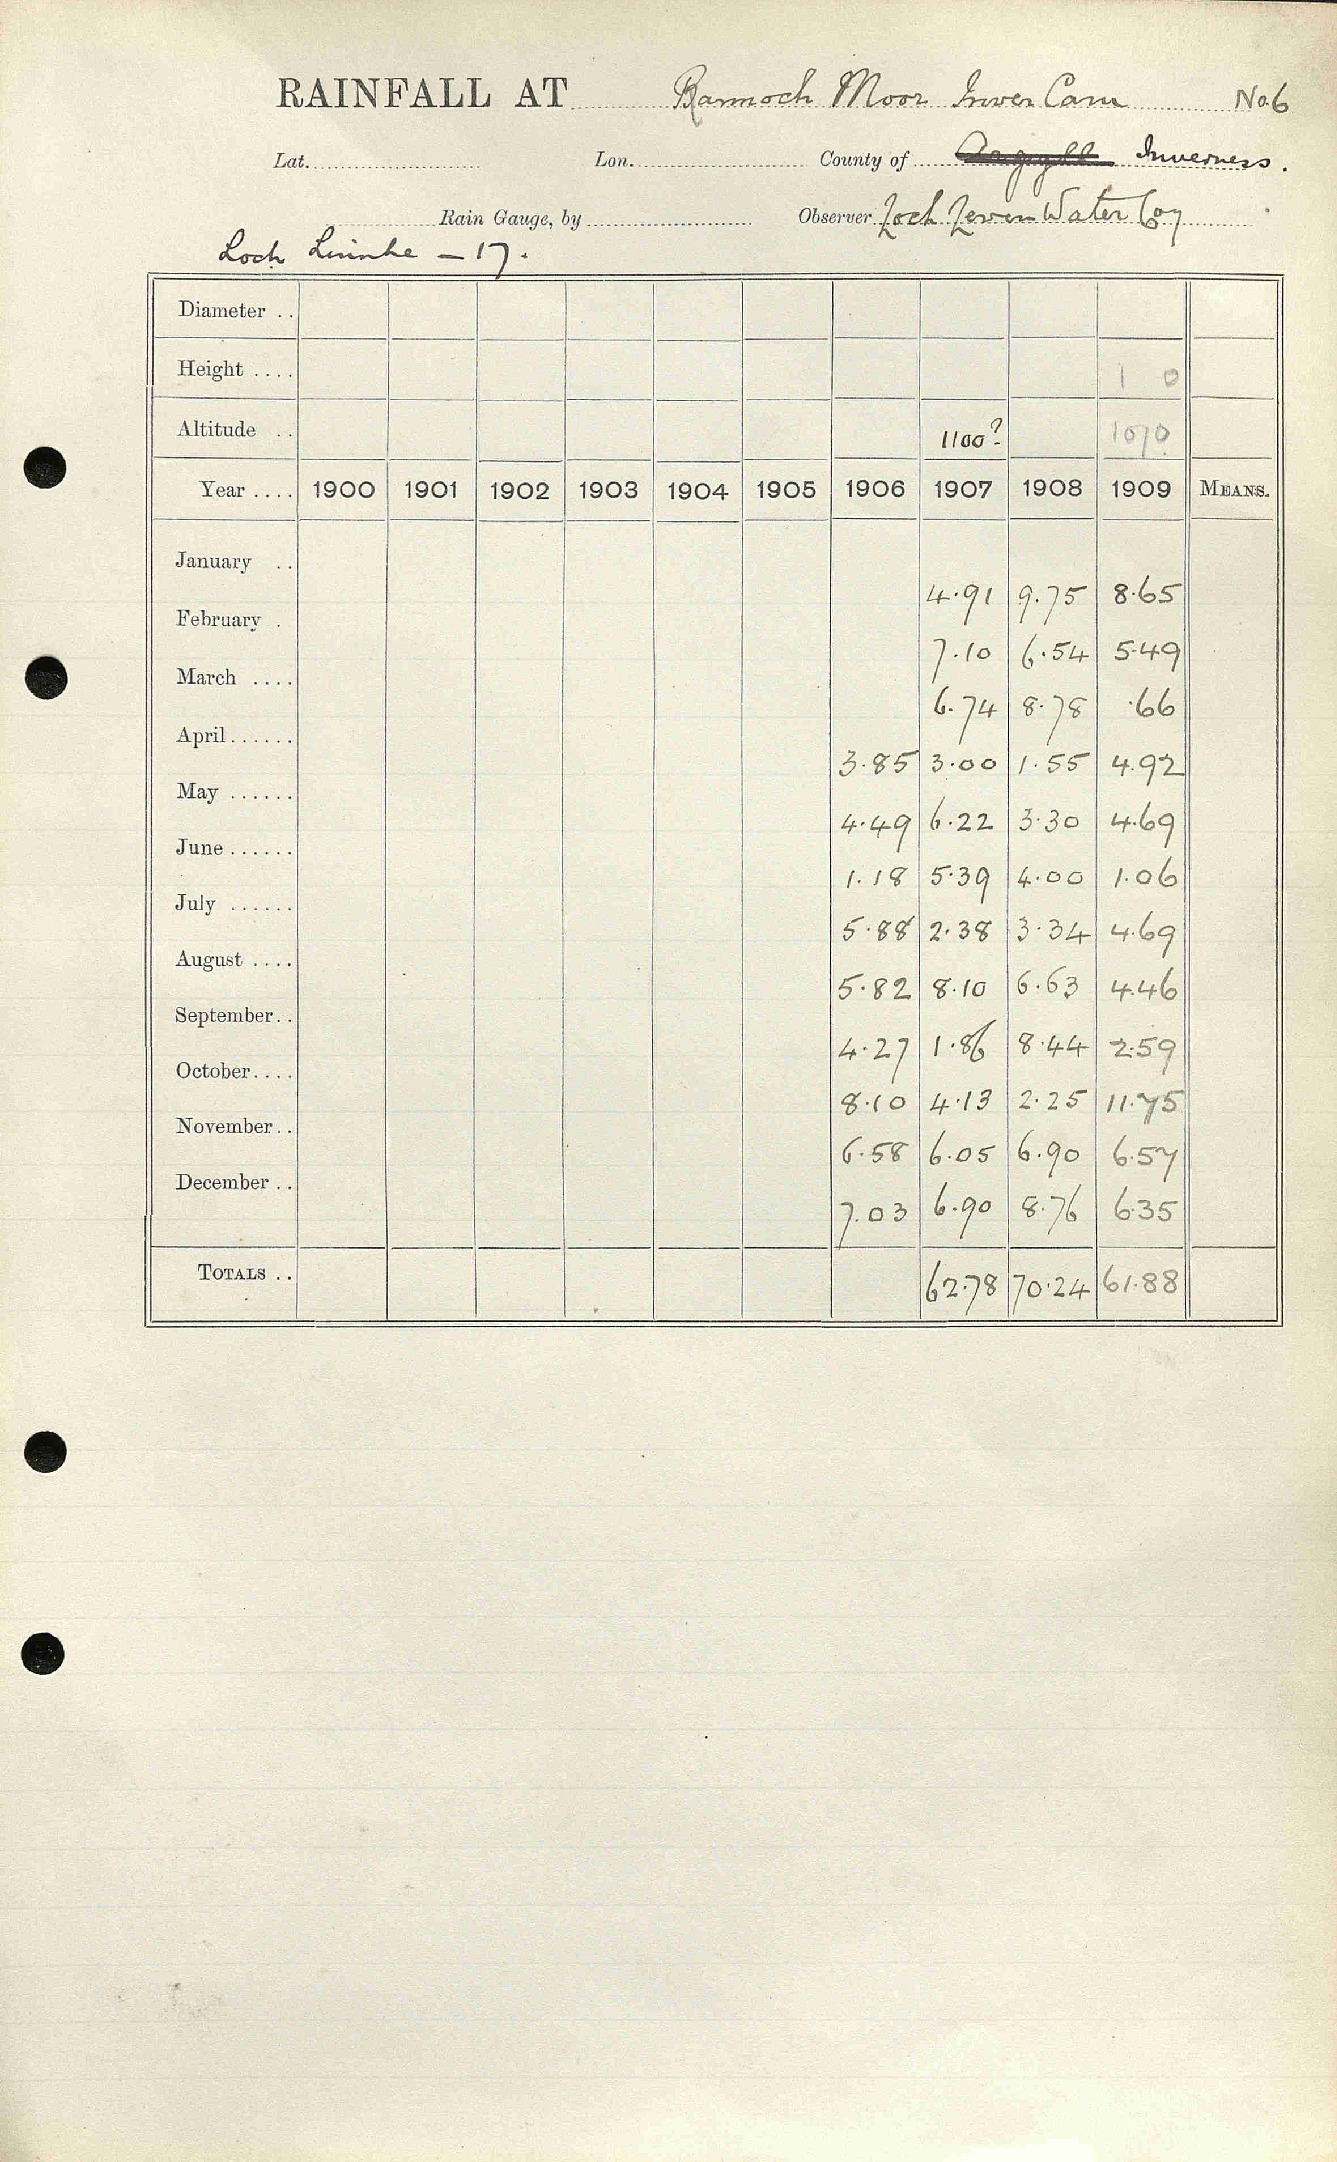 RAINFALL AT Rannoch Moor Inver Cam No.6
Lat. Lon. County of Argyll Inverness.
Rain Gauge, by Observer Loch Leven Water Coy
Loch Linnhe - 17.
Diameter ..
Height .... 1 0
Altitude .. 1100? 1070
Year .... 1900 1901 1902 1903 1904 1905 1906 1907 1908 1909 MEANS.
January .. 4.91 9.75 8.65
February . 7.10 6.54 5.49
March .... 6.74 8.78 .66
April...... 3.85 3.00 1.55 4.92
May ...... 4.49 6.22 3.30 4.69
June ...... 1.18 5.39 4.00 1.06
July ...... 5.88 2.38 3.34 4.69
August .... 5.82 8.10 6.63 4.46
September.. 4.27 1.86 8.44 2.59
October.... 8.10 4.13 2.25 11.75
November.. 6.58 6.05 6.90 6.57
December .. 7.03 6.90 8.76 6.35
TOTALS .. 62.78 70.24 61.88